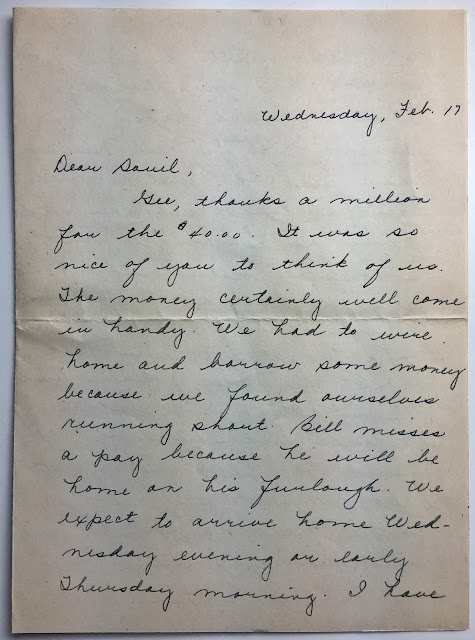 Wednesday, Feb. 17
Dear Saul,
Gee, thanks a million
for the $40.00. It was so
nice of you to think of us.
The money certainly will come
in handy. We had to wire
home and borrow some money
because we found ourselves
running short. Bill misses
a pay because he will be
home on his furlough. We
expect to arrive home Wed-
nesday evening or early
Thursday morning. I have